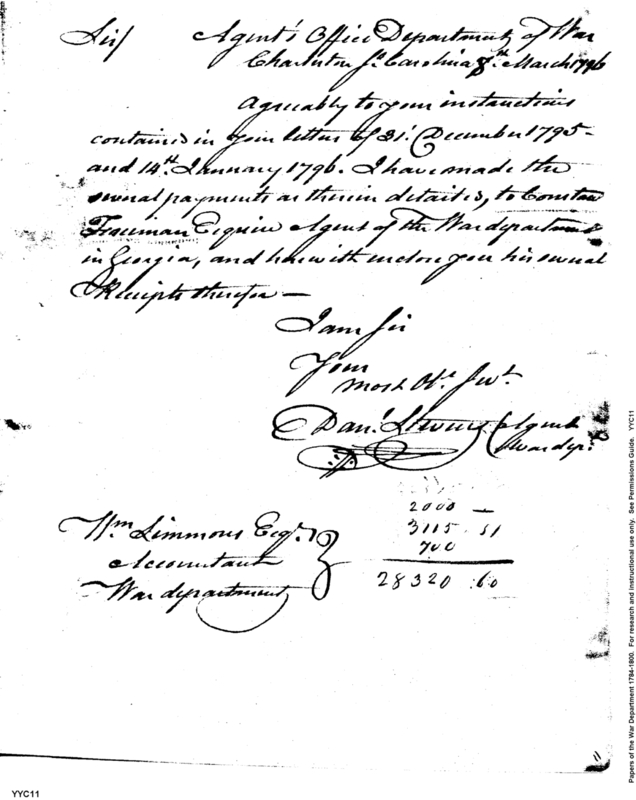 Sir/ Agent's Office Department of War
Charleston So. Carolina 8th March 1796
Agreeably to your instructions
contained in your letters of 31st December 1795 -
and 14th January 1796. I have made the
several payments as therein detailed, to Constan
Freeman Esquire Agent of the War department
in Georgia, and herewith inclose you his several
Receipts therefor —
I am Sir
Your
most Obt. Servt.
Danl. Stevens Agent
War dept.
2000 —
3115 . 51
700
28320 . 60
Wm. Simmons Esqr.
Accountant
War department
Papers of the War Department 1784-1800. For research and instructional use only. See Permissions Guide. YYC11
YYC11